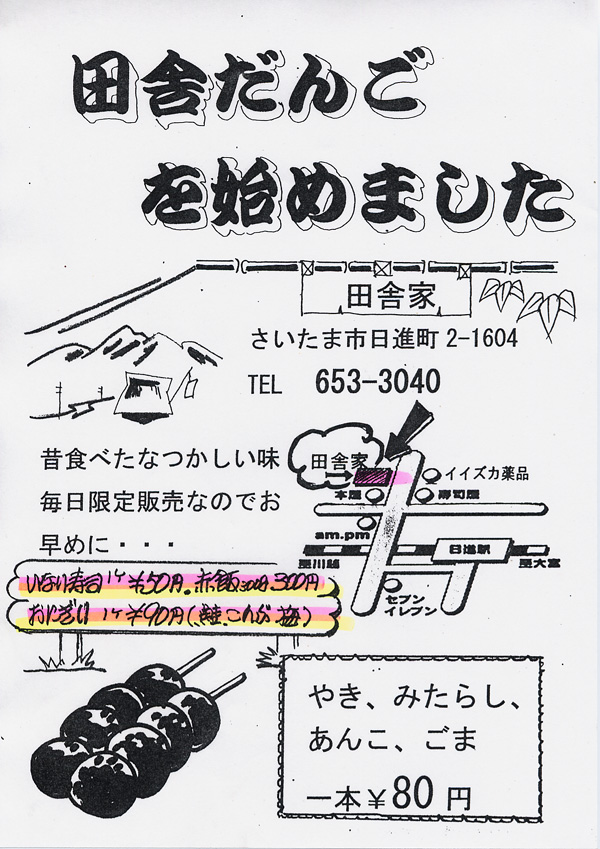 田舎だんご
を始めました
田舎家
さいたま市日進町 2-1604
TEL 653-3040
昔食べたなつかしい味
毎日限定販売なのでお
早めに・・・
田舎家
イイズカ薬品
本屋
寿司屋
am.pm
至川越
日進駅
至大宮
セブン
イレブン
いなり寿司 1ケ ¥50円。赤飯 300円
おにぎり 1ケ ¥90円(鮭、こんぶ、梅)
やき、みたらし、
あんこ、ごま
一本¥80円